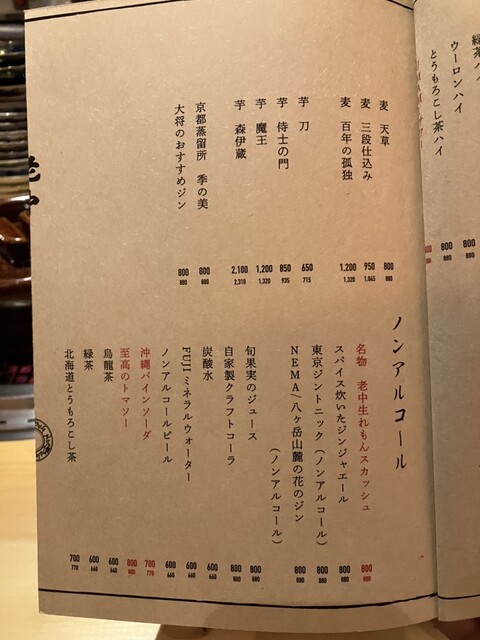 緑茶ハイ
ウーロンハイ
とうもろこし茶ハイ
800
880
800
880
麦 天草
800
880
麦 三段仕込み
950
1,045
麦 百年の孤独
1,200
1,320
芋 刀
650
715
芋 侍士の門
850
935
芋 魔王
1,200
1,320
芋 森伊蔵
2,100
2,310
京都蒸留所 季の美
800
880
大将のおすすめジン
800
880
ノンアルコール
名物 老中生れもんスカッシュ
800
880
スパイス炊いたジンジャエール
800
880
東京ジントニック(ノンアルコール)
800
880
NEMA/八ヶ岳山麓の花のジン
(ノンアルコール)
800
880
旬果実のジュース
800
880
自家製クラフトコーラ
800
880
炭酸水
600
660
FUJIミネラルウォーター
600
660
ノンアルコールビール
600
660
沖縄パインソーダ
700
770
至高のトマソー
800
880
烏龍茶
600
660
緑茶
600
660
北海道とうもろこし茶
700
770